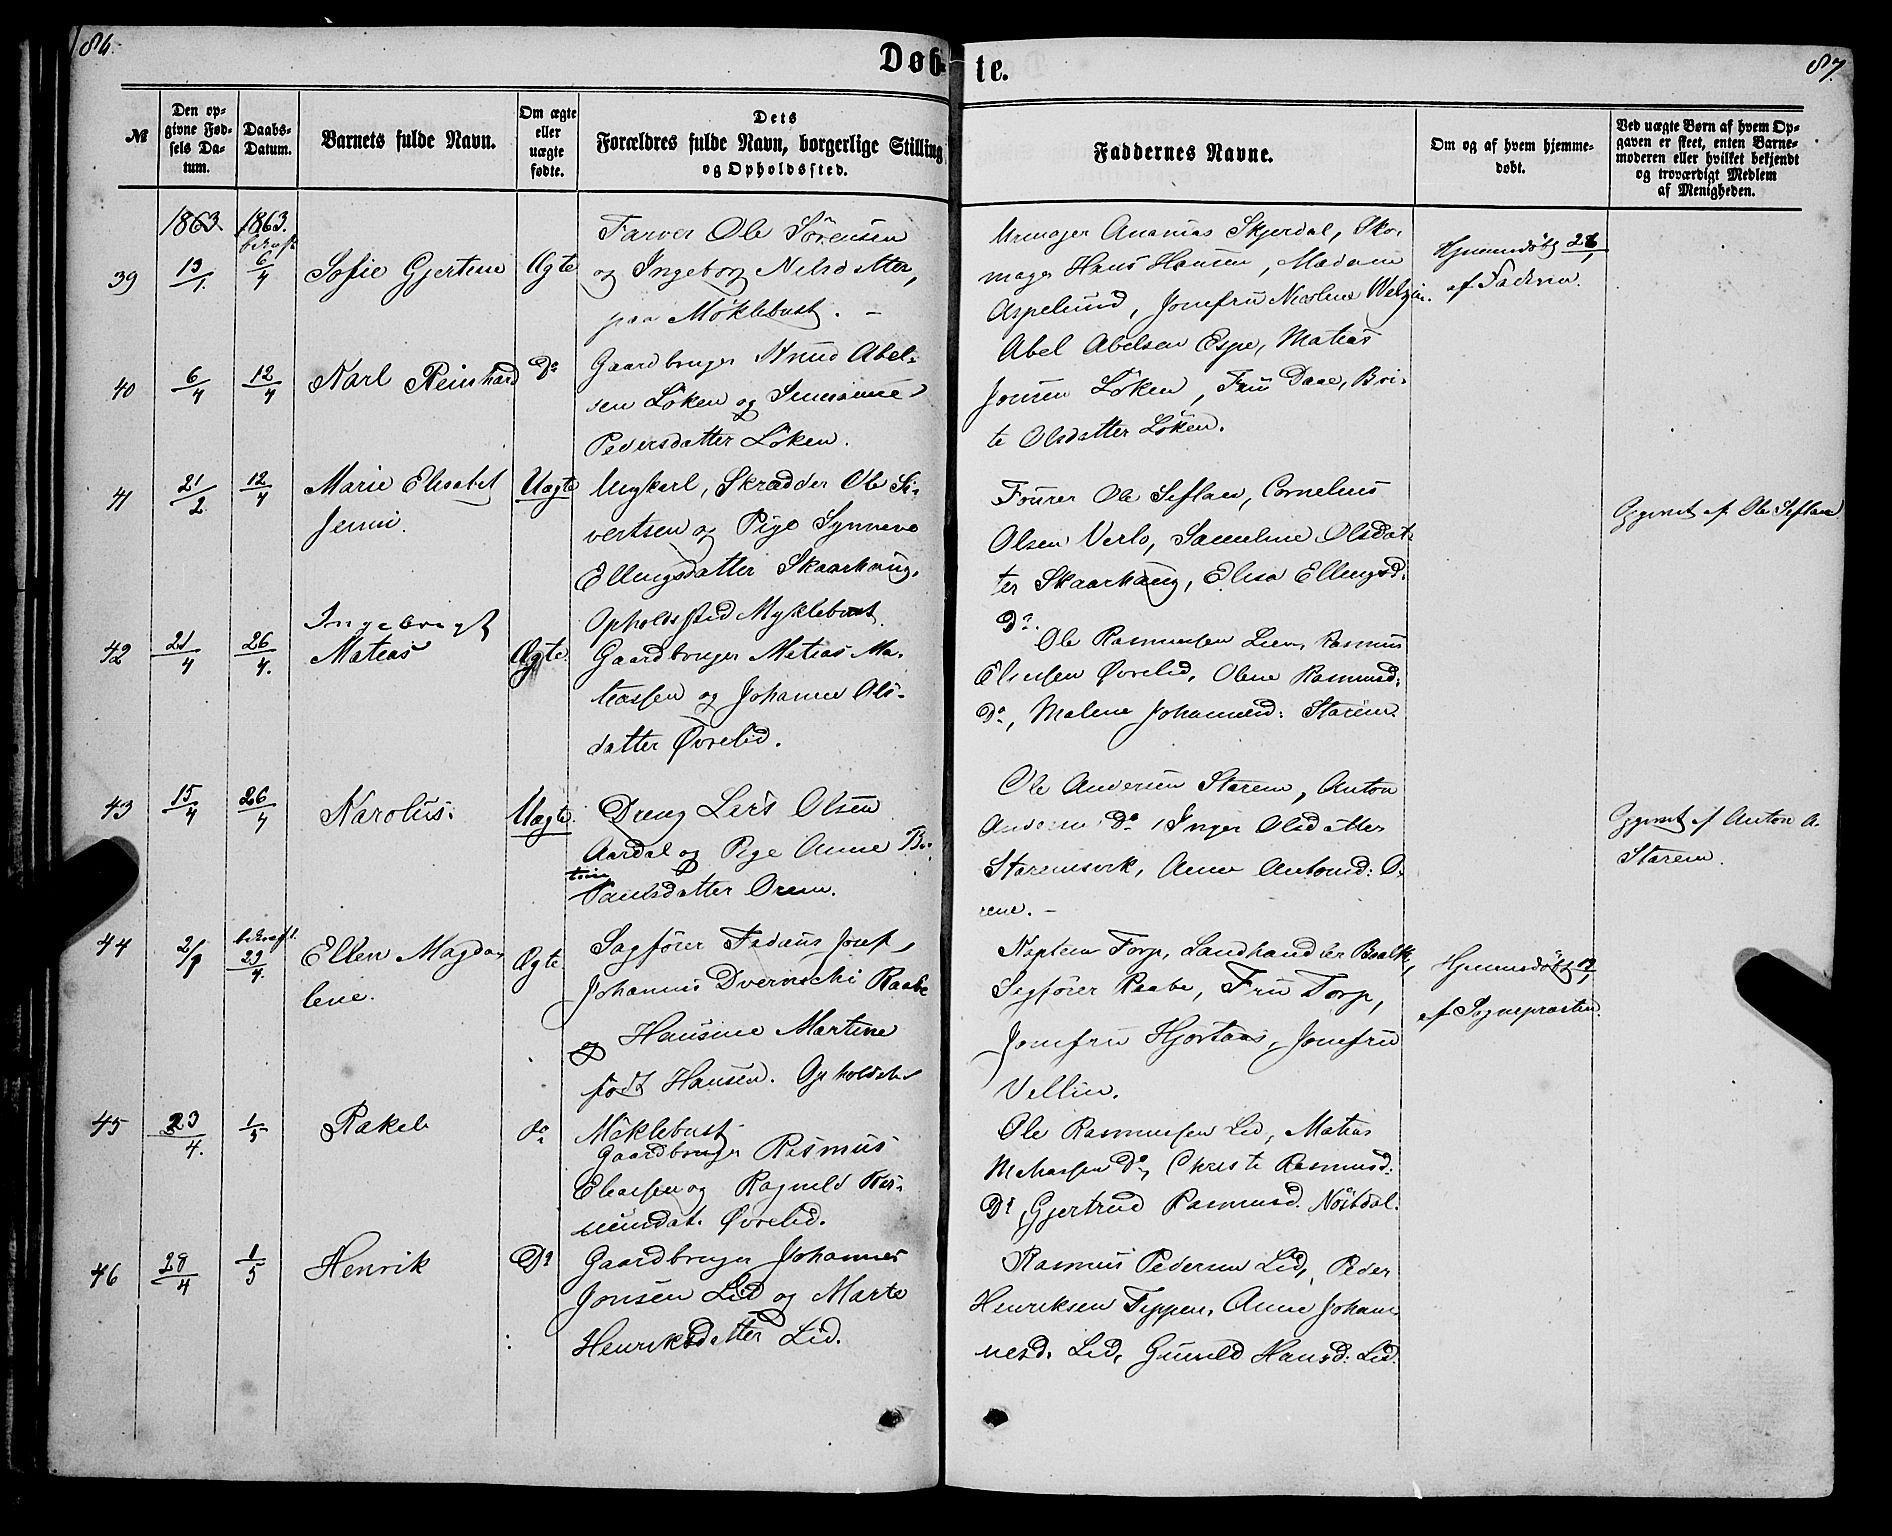 86.
Døb-
te.
87.
№
Den op-
givne Fød-
sels Da-
tum.
Daabs-
Datum.
Barnets fulde Navn.
Om ægte
eller
uægte
fødte.
Dets
Forældres fulde Navn, borgerlige Stilling
og Opholdssted.
Faddernes Navne.
Om og af hvem hjemme-
døbt.
Ved uægte Børn af hvem Op-
gaven er skeet, enten Barne-
moderen eller hvilket bekjendt
og troværdigt Medlem
af Menigheden.
1863.
1863.
bekræft.
39
13/1.
6/4
Sofie Gjertine
Ægte
Farver Ole Sørensen
og Ingeborg Nilsdatter,
paa Møklebust. –
Urmager Ananias Skjerdal, Sko-
mager Hans Hansen, Madame
Aspelund, Jomfru Nicoline Welzin.
Hjemmedøbt
af Faderen.
40
6/4
12/4
Karl Reinhard
Do
Gaardbruger Knud Abel-
sen Løken og Simmine
Pedersdatter Løken.
Abel Abelsen Espe, Matias
Jonsen Løken, Fru Daae, Bri-
te Olsdatter Løken.
41
21/2
12/4
Marie Elisabet
Jenni.
Uægte
Ungkarl, Skrædder Ole Si-
vertsen og Pige Synneve
Ellingsdatter Skaarhaug.
Opholdssted Myklebust.
Fourer Ole Seflan, Cornelius
Olsen Verlo, Sameline Olsdat-
ter Skaarhaug, Elisa Ellingsd:
Do.
Opgivet af Ole Seflan
42
21/4
26/4.
Ingebrigt
Matias
Ægte.
Gaardbruger Matias Ma-
tiassen og Johanne Ols-
datter Øvrelid.
Ole Rasmussen Lien, Rasmus
Eliassen Øvrelid, Oline Rasmusd:
Do, Malene Johannesd: Starem.
43
15/4
26/4
Karolus.
Uægte.
Dreng Lars Olsen
Aardal og Pige Anne Be-
toine
Paulsdatter Orem.
Ole Andersen Starem, Anton
Andersen Do, Inger Olsdatter
Staremsvik, Anne Antonsd: O-
rene. –
Opgivet af Anton A.
Starem.
44
2/1
bekræft.
23/4.
Ellen Magda-
lene.
Ægte
Sagfører Tadæus Josef
Johannes Dvernichi Raabe
og Hansine Martine
født Hansen. Opholdst
Møklebust
Kaptein Torp, Landhandler Baalk,
Sagfører Raabe, Fru Torp,
Jomfru Hjortaas, Jomfru
Vellin.
Hjemmedøbt
af Sognepræsten.
45
23/4.
1/5
Rakel
do
Gaardbruger Rasmus
Eliassen og Ragnild Ras-
musdat. Øvrelid.
Ole Rasmussen Lid, Matias
Matiassen Do, Christi Rasmusd:
Do, Gjertrud Rasmusd. Nøstdal.
46
28/4
1/5
Henrik
Do
Gaardbruger Johannes
Jonsen Lid og Marte
Henriksdatter Lid.
Rasmus Pedersen Lid, Peder
Henriksen Teppen, Anne Johan-
nesd. Lid, Gunild Hansd: Lid.